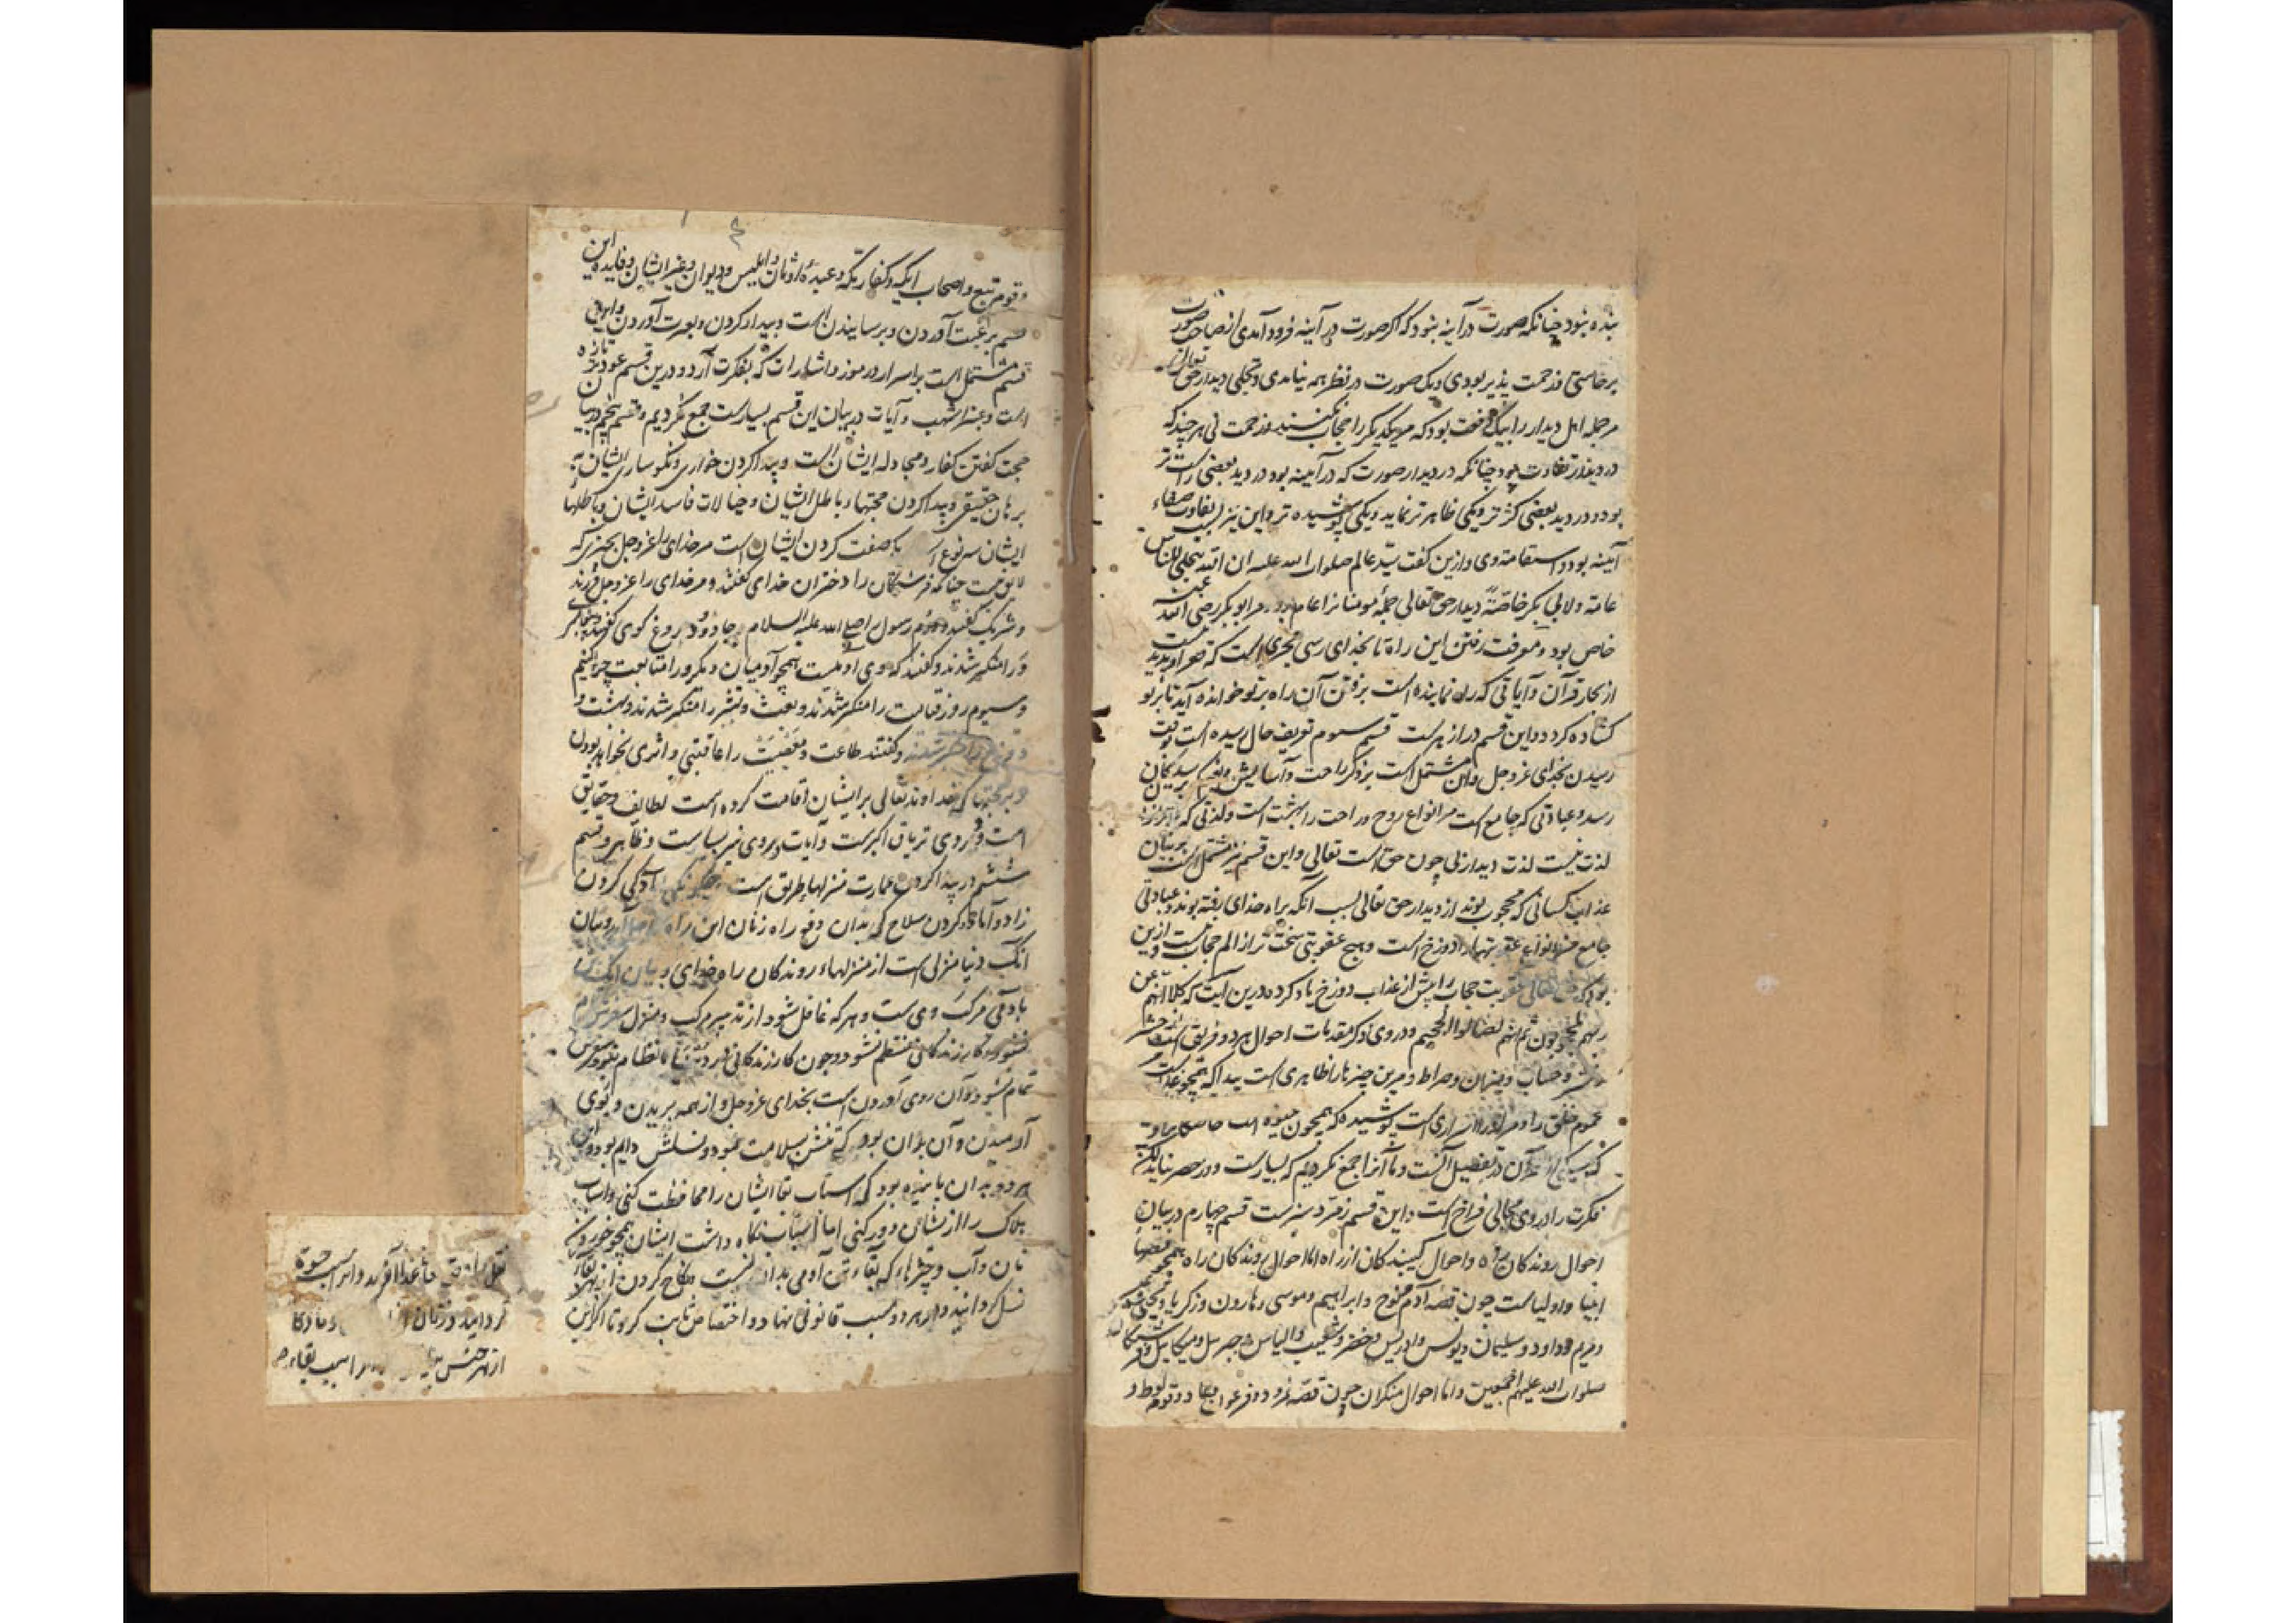 بنده نبود چنانکه صورت در آینه نبود که اگر صورت در آینه فرود آمدی از صاحب صورت
برخاستی و زحمت پذیر بودی و یک صورت در نظر همه نیامدی و تجلی دیدار حق تعالی
مر جمله اهل دیدار را بیک دفعت بود که مر یکدیگر را حجاب نکنند و زحمت نی هر چند که
در دیدار تفاوت بود چنانکه در دیدار صورت که در آیینه بود در دید بعضی راست تر
بود و در دید بعضی کژتر و یکی ظاهر تر نماید و یکی پوشیده تر و این نیز بسبب تفاوت صفاء
آیینه بود و استقامت وی و ازین گفت سید عالم صلوات الله علیه ان الله یتجلی للناس
عامة و لابی بکر خاصة دیدار حق تعالی جمله مومنانرا عام بود مر ابوبکر رضی الله عنه
خاص بود و معرفت رفتن این راه تا بخدای رسی بحری است که
از بحار قرآن و آیاتی که راه نماینده است برفتن آن راه بر تو خوانده آید تا بر تو
گشاده گردد و این قسم در ازهرست قسم سیوم تعریف حال رسیده است وقت
رسیدن بخدای عز و جل و این مشتمل است بر ذکر راحت و آسایش و نعیم که بدیشان
رسد و عبارتی که جامع است مر انواع روح و راحت را بهشت است و لذتی که
لذت نیست لذت دیدار بی چون حق است تعالی و این قسم نیز مشتمل است بر بیان
عذاب کسانی که محجوب بوند از دیدار حق تعالی بسبب انکه براه خدای نرفته بوند و عبارتی
جامع مر انواع عقوبتها را دوزخ است و هیچ عقوبتی سخت تر از الم حجاب نیست و ازین
بود که حق تعالی عقوبت حجاب را پیش از عذاب دوزخ یاد کرده درین آیت که کلا انهم عن
ربهم لمحجوبون ثم انهم لصالوا الجحیم و در وی ذکر مقدمات احوال هر دو فریق است از حشر
و نشر و حساب و میزان و صراط و مرین چیزها را ظاهری است پیدا که همچو غذاست
عموم خلق را و مر او را اسراری است پوشیده که همچون میوه است
که سیکی از قرآن در تفصیل آنست و ما آنرا جمع نکردیم که بسیارست و در حصر نیاید لیکن
فکرت را در وی مجالی فراخ است و این قسم زمرد سبزست قسم چهارم در بیان
احوال روندگان راه و احوال کیبندکان از راه اما احوال روندگان راه همچو قصها
انبیا و اولیاست چون قصه آدم و نوح و ابراهیم و موسی و هارون و زکریا و یحیی و عیسی
و مریم و داود و سلیمان و یونس و ادریس و خضر و شعیب و الیاس و جبریل و میکایل و فرشتگان
صلوات الله علیهم اجمعین و اما احوال منکران چون قصه نمرود و فرعون و عاد و قوم لوط و
و قوم تبع و اصحاب ایکه و کفار مکه و عبده اوثان و ابلیس و دیوان و غیر ایشان و فایده این
قسم برغبت آوردن و برسانیدن است و بیدار کردن و بعبرت آوردن و این
قسم مشتمل است بر اسرار و رموز و اشارات که بفکرت آرد و درین قسم عود تازه
است و عنبر اشهب و آیات در بیان این قسم بسیارست جمع نکردیم و قسم پنجم در بیان
حجت گفتن کفار و مجادله ایشان است و پیدا کردن خواری و نگوساری ایشان به
برهان حقیقی و پیدا کردن حجتهاء باطل ایشان و خیالات فاسد ایشان و باطلها
ایشان سه نوع است یک صفت کردن ایشان است مر خدای را عز و جل بچیزی که
لایق نیست چنانکه فرشتگان را دختران خدای گفتند و مر خدای را عز و جل فرزند
و شریک گفتند دوم رسول را صلی الله علیه السلام جادو و دروغ گوی گفتند و پیغامبری
ورا منکر شدند و گفتند که وی آدمیست همچو آدمیان دیگر و را متابعت چرا کنیم
و سیوم روز قیامت را منکر شدند و بعث و نشر را منکر شدند و بهشت و
دوزخ را منکر شدند و گفتند طاعت و معصیت را عاقبتی و اثری نخواهد بودن
و بر حجتها که خداوند تعالی بر ایشان اقامت کرده است لطایف و حقایق
است و در وی تریاق اکبرست و آیات در وی نیز بسیارست و ظاهر و قسم
ششم در پیدا کردن عمارت منزلها طریق است و چگونگی آمادگی کردن
زاد و آماده کردن سلاح که بدان دفع راه زنان این راه و بیان
آنک دنیا منزلی است از منزلهاء روندگان راه خدای و بیان آنک تن
آدمی مرکب وی ست و هر که غافل شود از تدبیر مرکب و منزل سفرش تمام
نشود و تا کار زندگانی منتظم نشود و چون کار زندگانی در دنیا بانتظام نبود سفرش
تمام نشود و آن روی آوردن است بخدای عز و جل و از همه بریدن و بوی
آرمیدن و آن بدان بود که تنش بسلامت بود و نسلش دایم بود و این
هر دو بدان باز بسته بود که اسباب بقا ایشان را محافظت کنی و اسباب
هلاک را از یشان دور کنی اما اسباب نگاه داشت ایشان همچو خوردن
نان و آب و چیزهاء که بقاء تن آدمی بدان است و نکاح کردن از بهر بقاء
نسل گردانید و از هر دو سبب قانونی نهاد و اختصاص ثابت کرد تا اگر این
از بهر جنس